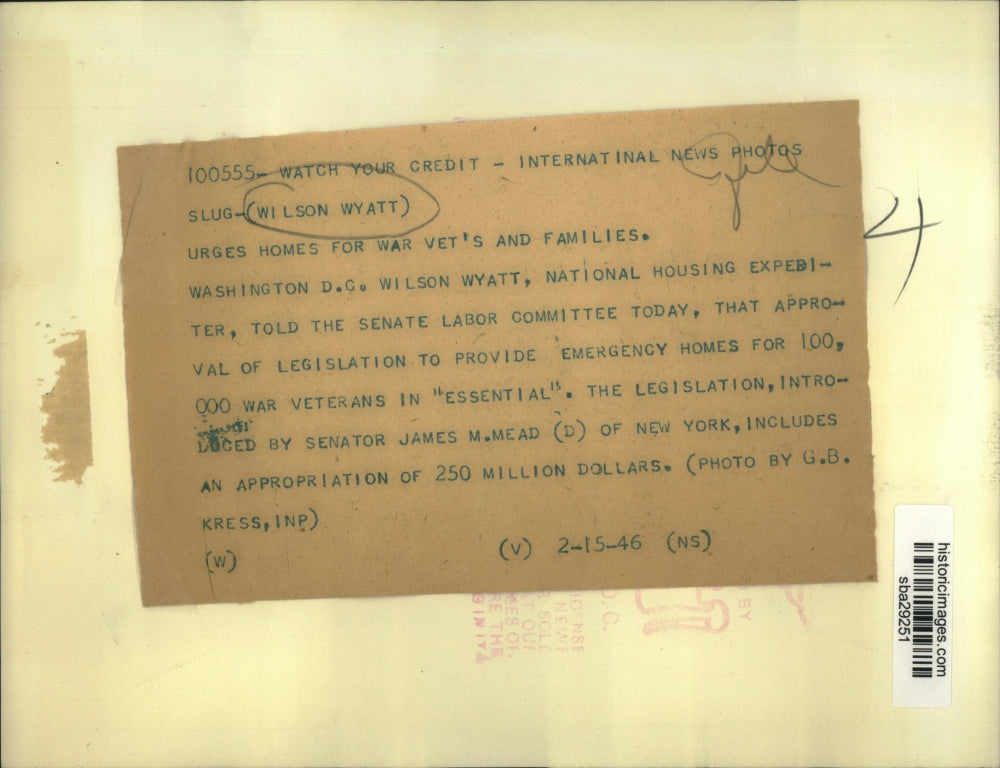 100555- WATCH YOUR CREDIT - INTERNATINAL NEWS PHOTOS
SLUG-(WILSON WYATT)
URGES HOMES FOR WAR VET'S AND FAMILIES.
WASHINGTON D.C. WILSON WYATT, NATIONAL HOUSING EXPEDI-
TER, TOLD THE SENATE LABOR COMMITTEE TODAY, THAT APPRO-
VAL OF LEGISLATION TO PROVIDE EMERGENCY HOMES FOR 100,
000 WAR VETERANS IN "ESSENTIAL". THE LEGISLATION,INTRO-
DUCED BY SENATOR JAMES M.MEAD (D) OF NEW YORK,INCLUDES
AN APPROPRIATION OF 250 MILLION DOLLARS. (PHOTO BY G.B.
KRESS,INP)
(W) (V) 2-15-46 (NS)
4
historicimages.com
sba29251
BY
D.C.